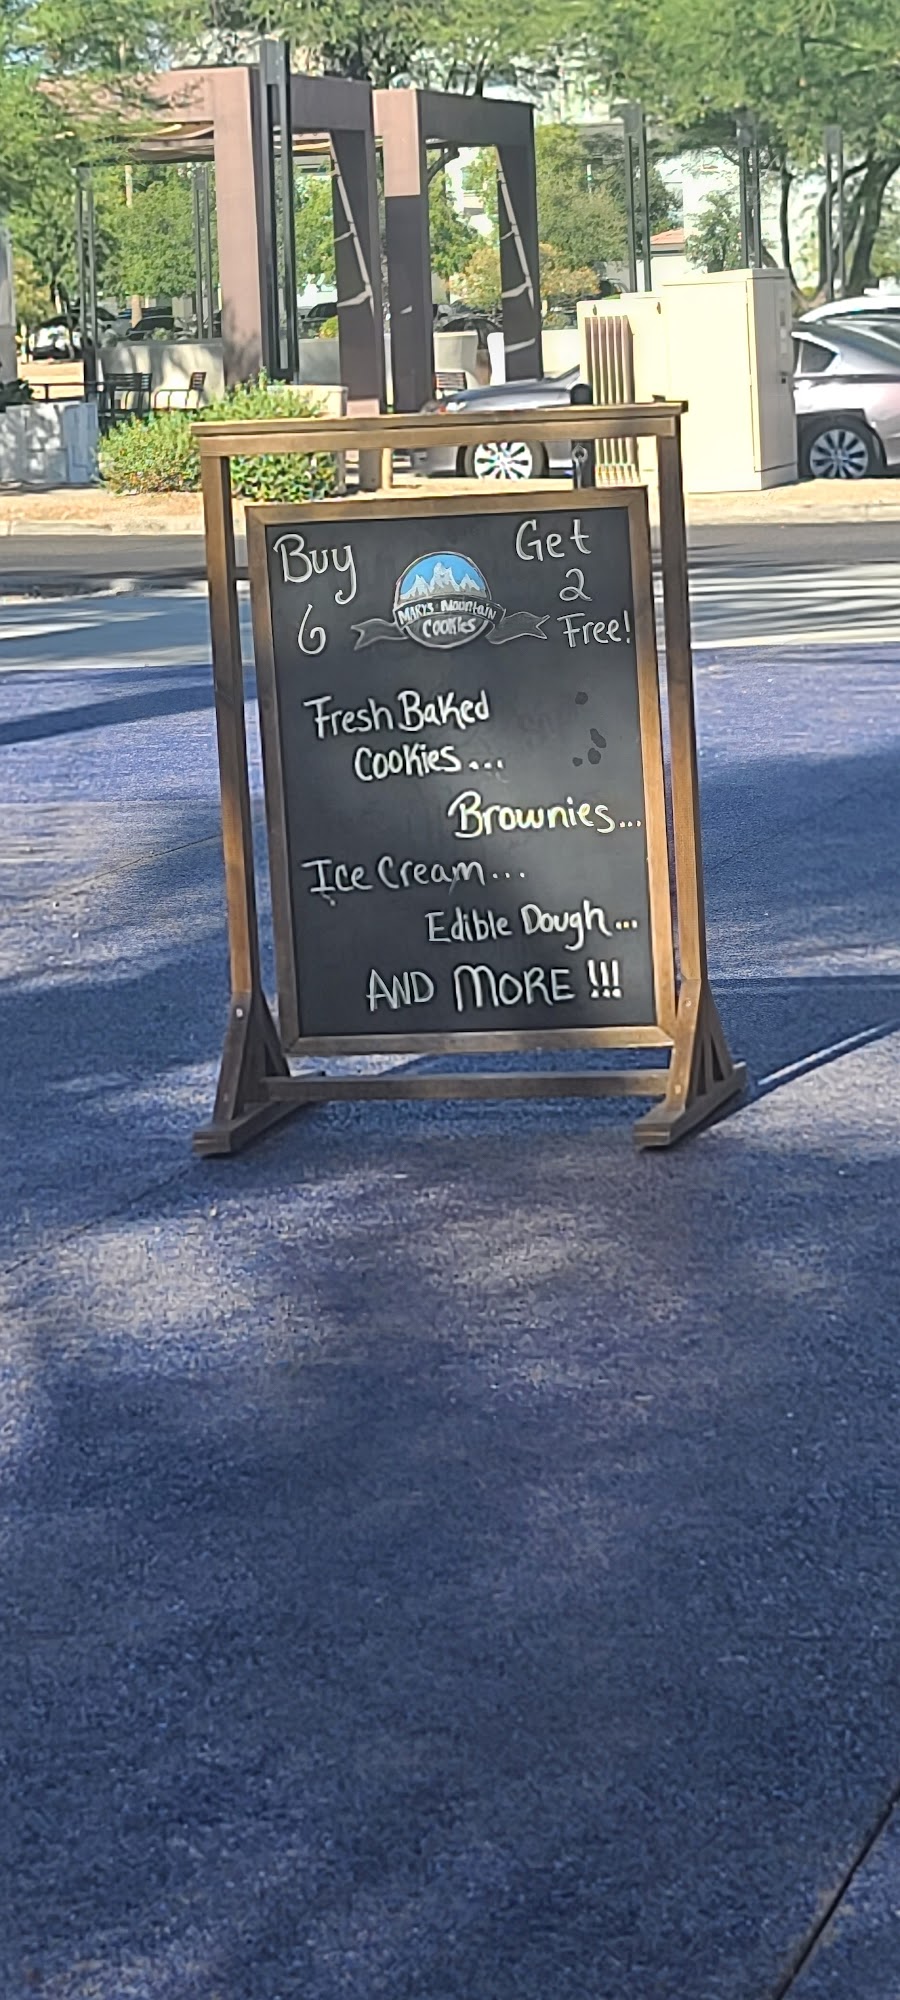 Buy
6
MARYS Mountain
COOKIES
Get
2
Free!
Fresh Baked
Cookies...
Brownies...
Ice Cream...
Edible Dough...
AND MORE !!!